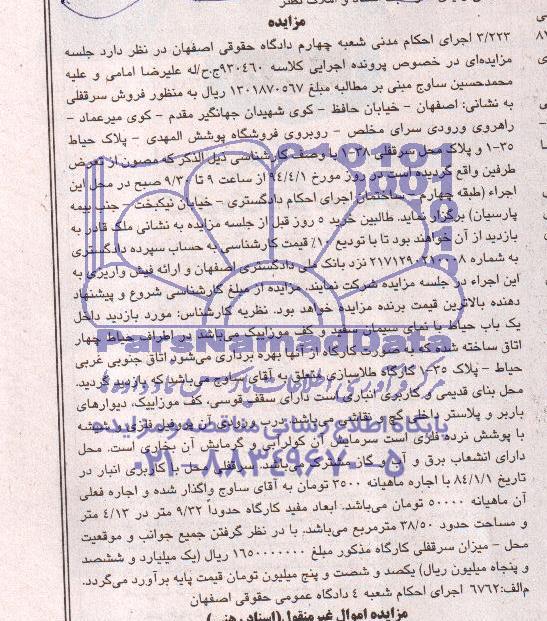 مزایده
۳/۲۲۳ اجرای احکام مدنی شعبه چهارم دادگاه حقوقی اصفهان در نظر دارد جلسه
مزایده‌ای در خصوص پرونده اجرایی کلاسه ۹۳۰۴۶۰ج.ح/له علیرضا امامی و علیه
محمدحسین ساوج مبنی بر مطالبه مبلغ ۱۳۰۱۸۷۰۵۶۷ ریال به منظور فروش سرقفلی
به نشانی: اصفهان - خیابان حافظ - کوی شهیدان جهانگیر مقدم - کوی میرعماد -
راهروی ورودی سرای مخلص - روبروی فروشگاه پوشش المهدی - پلاک حیاط
۱-۳۵ و پلاک محل سرقفلی با وصف کارشناسی ذیل الذکر که مصون از تعرض
طرفین واقع گردیده است در روز مورخ ۹۴/۴/۱ از ساعت ۹ تا ۹/۳۰ صبح در محل این
اجراء (طبقه چهارم - ساختمان اجرای احکام دادگستری - خیابان نیکبخت - جنب بیمه
پارسیان) برگزار نماید. طالبین خرید ۵ روز قبل از جلسه مزایده به نشانی ملک قادر به
بازدید از آن خواهند بود تا با تودیع ۱۰٪ قیمت کارشناسی به حساب سپرده دادگستری
به شماره نزد بانک ملی دادگستری اصفهان و ارائه فیش واریزی به
این اجراء در جلسه مزایده شرکت نمایند. مزایده از مبلغ کارشناسی شروع و پیشنهاد
دهنده بالاترین قیمت برنده مزایده خواهد بود. نظریه کارشناس: مورد بازدید داخل
یک باب حیاط با نمای سیمان سفید و کف موزاییک می‌باشد در اطراف حیاط چهار
اتاق ساخته شده که به صورت کارگاه از آنها بهره برداری می‌شود اتاق جنوبی غربی
حیاط - پلاک ۳۵-۱ کارگاه طلاسازی متعلق به آقای ساوج می‌باشد که بازدید گردید.
محل بنای قدیمی و کاربری انباری است دارای سقف طوسی، کف موزاییک، دیوارهای
باربر و پلاستر داخلی گچ و نقاشی می‌باشد. درب ورودی آن پروفیل فلزی و شیشه
با پوشش نرده فلزی است سرمایش آن کولرآبی و گرمایش آن بخاری است. محل
دارای انشعاب برق و آب و گاز مشترک می‌باشد. سرقفلی محل با کاربری انبار در
تاریخ ۸۴/۱/۱ با اجاره ماهیانه ۳۵۰۰ تومان به آقای ساوج واگذار شده و اجاره فعلی
آن ماهیانه ۵۰۰۰۰ تومان می‌باشد. ابعاد مفید کارگاه حدوداً ۹/۳۲ متر در ۴/۱۳ متر
و مساحت حدود ۳۸/۵۰ مترمربع می‌باشد. با در نظر گرفتن جمیع جوانب و موقعیت
محل - میزان سرقفلی کارگاه مذکور مبلغ ۱۶۵۰۰۰۰۰۰۰ ریال (یک میلیارد و ششصد
و پنجاه میلیون ریال) یکصد و شصت و پنج میلیون تومان قیمت پایه برآورد می‌گردد.
م‌الف: ۶۷۶۲ اجرای احکام شعبه ۴ دادگاه عمومی حقوقی اصفهان
مزایده اموال غیرمنقول (اسناد رهنی)
ParsNamadData
پایگاه اطلاع رسانی مناقصه و مزایده
۰۲۱-۸۸۳۴۹۶۷۰-۵